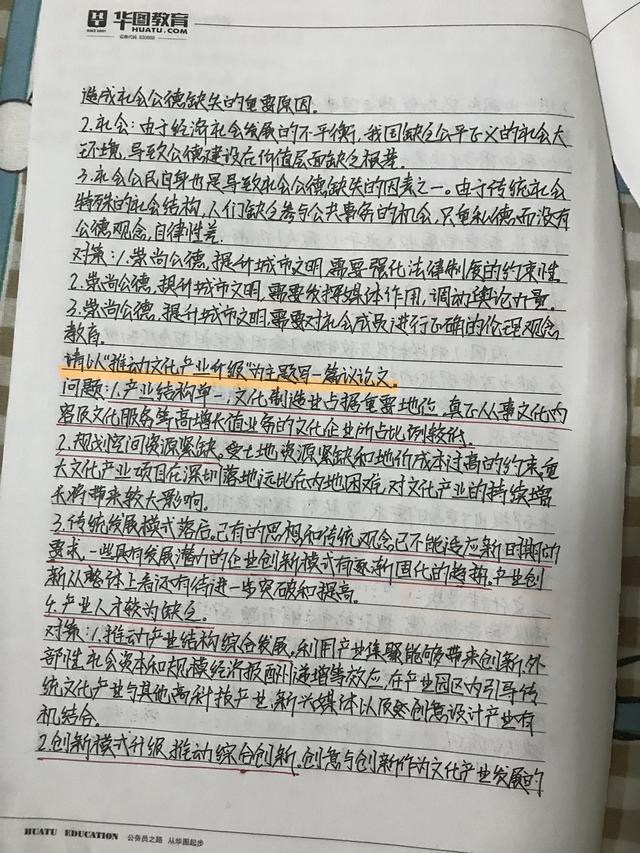 华图教育
HUATU.COM
造成社会公德缺失的重要原因.
2.社会:由于经济社会发展的不平衡,我国缺乏公平正义的社会大
环境,导致公德建设在价值层面缺乏根基.
3.社会公民自身也是导致社会公德缺失的因素之一.由于传统社会
特殊的社会结构,人们缺乏参与公共事务的机会,只重私德而没有
公德观念,自律性差.
对策:1.崇尚公德,提升城市文明,需要强化法律制度的约束性
2.崇尚公德,提升城市文明,需要发挥媒体作用,调动舆论力量.
3.崇尚公德,提升城市文明,需要对社会成员进行正确的伦理观念
教育.
请以"推动文化产业升级"为主题写一篇议论文.
问题:1.产业结构单一,文化制造业占据重要地位,真正从事文化内
容及文化服务等高增长值业务的文化企业所占比例较低.
2.规划空间资源紧缺.受土地资源紧缺和地价成本过高的约束,重
大文化产业项目在深圳落地远比在内地困难,对文化产业的持续增
长将带来较大影响.
3.传统发展模式落后.已有的思想和传统观念已不能适应新时期的
要求,一些具有发展潜力的企业创新模式有逐渐固化的趋势,产业创
新从整体上看还有待进一步突破和提高.
4.产业人才较为缺乏.
对策:1.推动产业结构综合发展,利用产业集聚能够带来创新,外
部性,社会资本和规模经济报酬递增等效应,在产业园区内引导传
统文化产业与其他高科技产业,新兴媒体以及创意设计产业有
机结合.
2.创新模式升级,推动综合创新.创意与创新作为文化产业发展的
HUATU EDUCATION 公务员之路 从华图起步